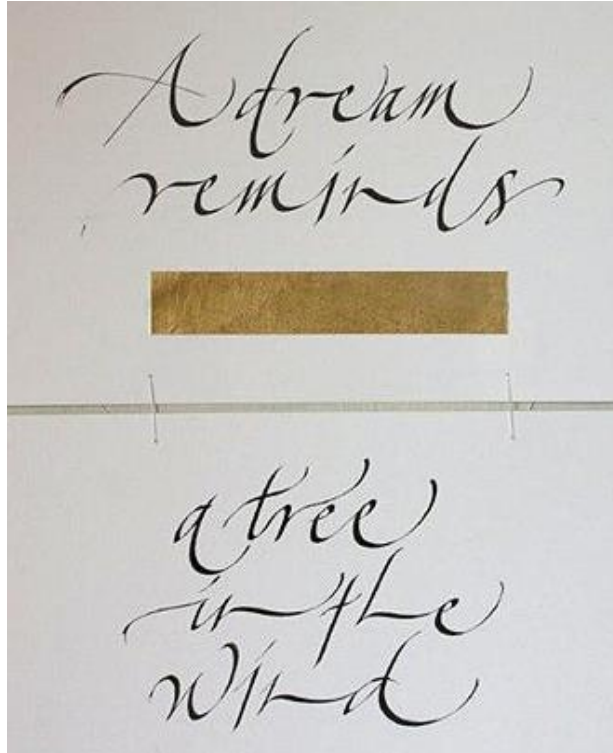 A dream
reminds
a tree
in the
wind